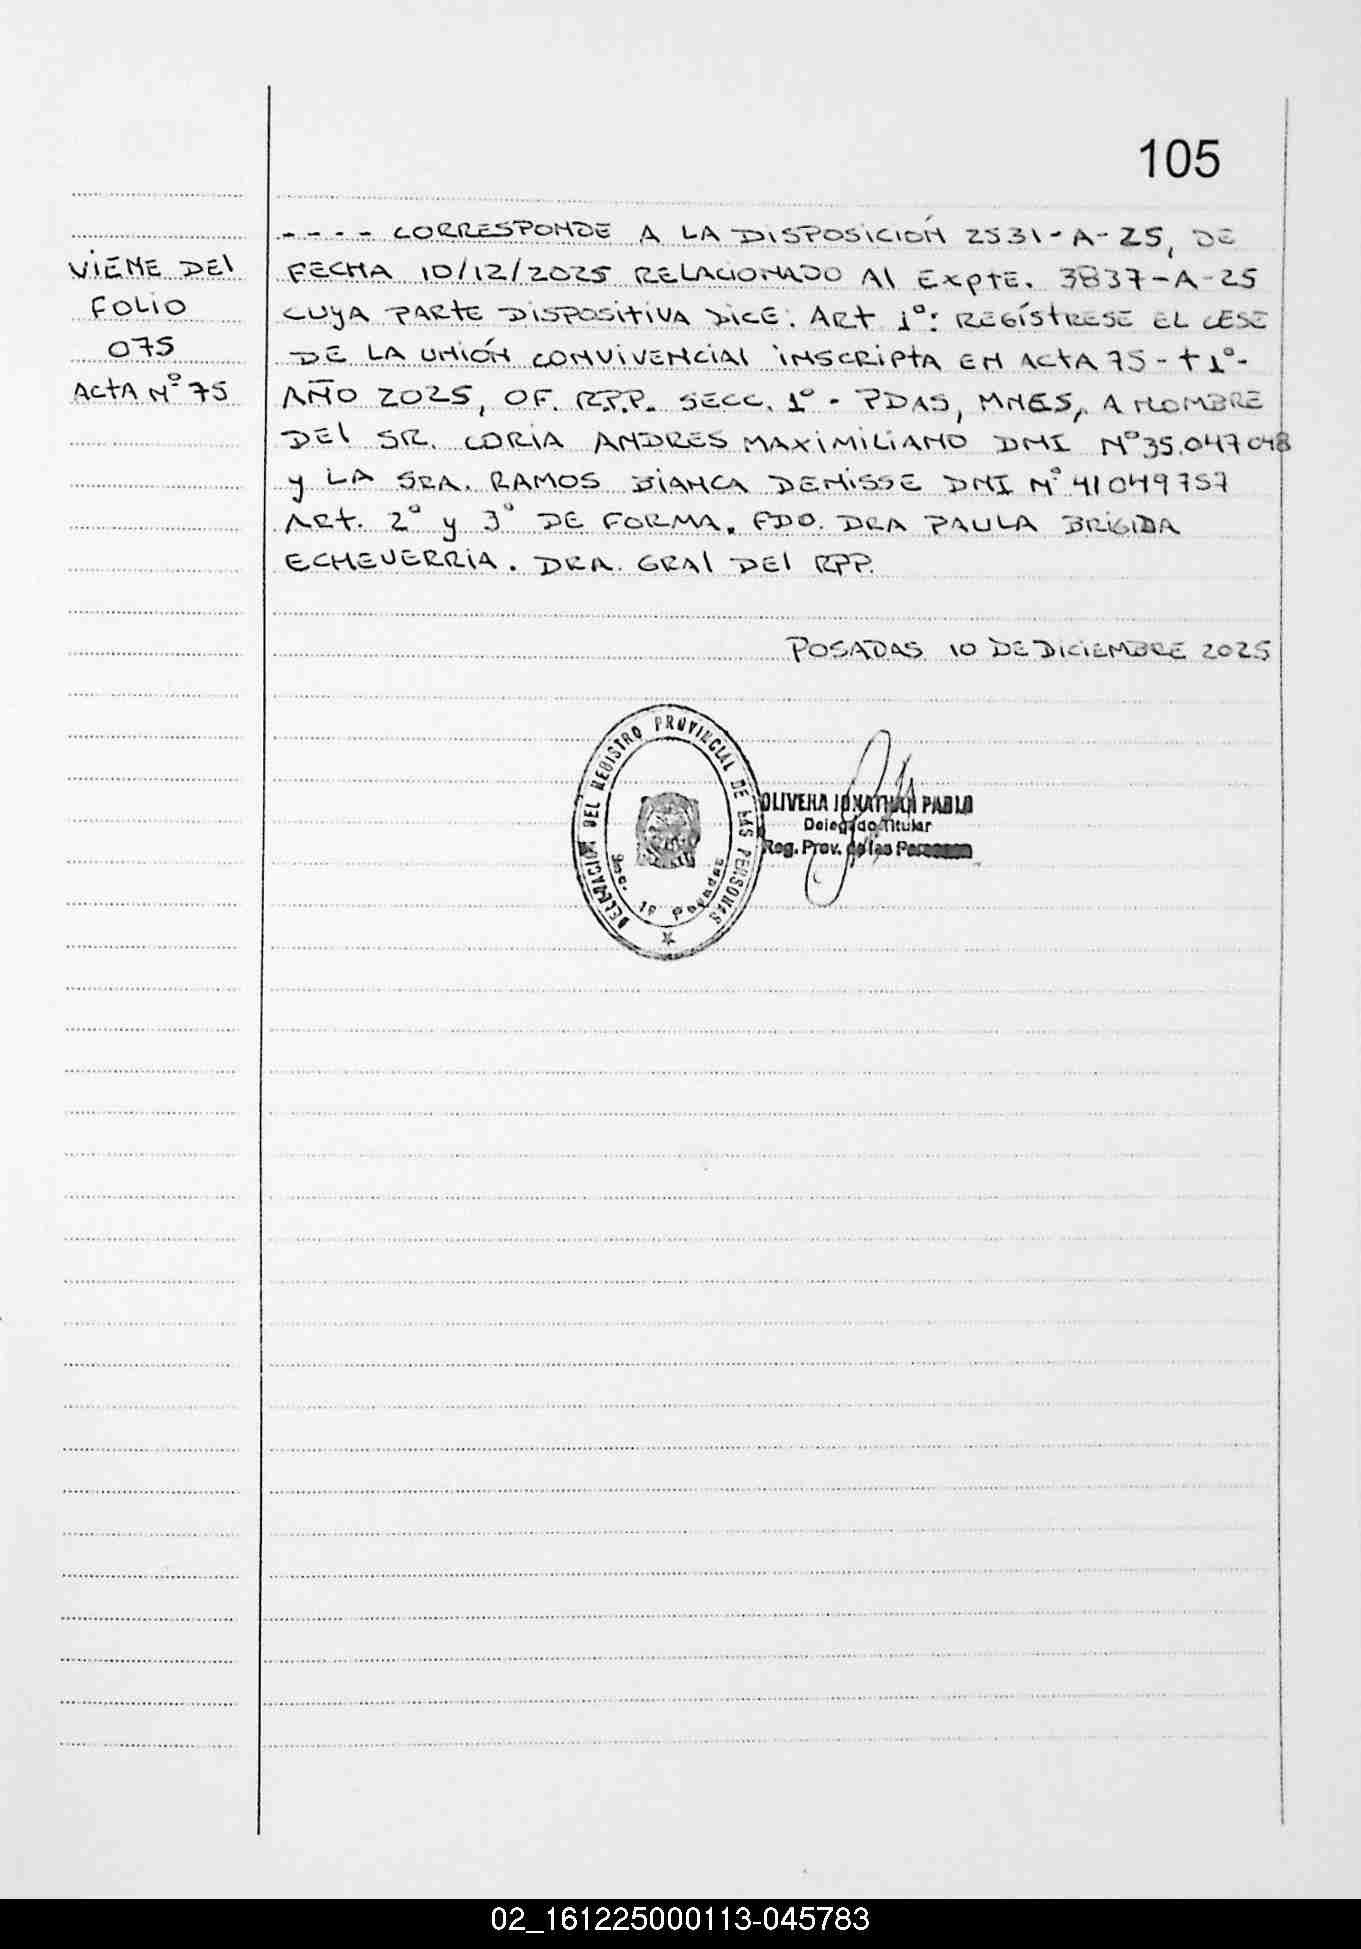 105
- - - - CORRESPONDE A LA DISPOSICIÓN 2531-A-25, DE
VIENE DEL
FECHA 10/12/2025 RELACIONADO Al Expte. 3837-A-25
FOLIO
CUyA PARTE DISPOSITIVA DICE: ART 1º: REGÍSTRESE EL CESE
075
DE LA UNIÓN CONVIVENCIAL INSCRIPTA EN ACTA 75 - T 1º-
ACTA Nº 75
AÑO 2025, OF. R.P.P. SECC. 1º - PDAS, MNES, A NOMBRE
DEL SR. CORIA ANDRES MAXIMILIANO DNI Nº 35.047048
y LA SRA. RAMOS BIANCA DENISSE DNI Nº 41049757
ART. 2º y 3º DE FORMA. FDO. DRA PAULA BRIGIDA
ECHEVERRIA. DRA. GRAL DEL RPP.
POSADAS 10 DE DICIEMBRE 2025
DELEGACION DEL REGISTRO PROVINCIAL DE LAS PERSONAS
Sec. 1º Posadas
OLIVERA JONATHAN PABLO
Delegado Titular
Reg. Prov. de las Personas
02_161225000113-045783